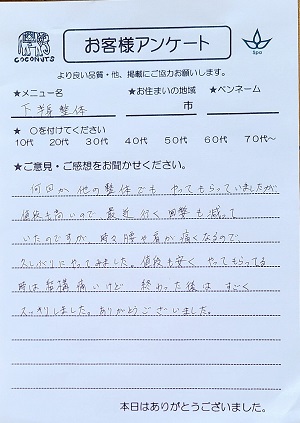 COCONUTS
お客様アンケート
Spa
より良い品質・他、掲載にご協力お願いします。
★メニュー名 ★お住まいの地域 ★ペンネーム
下半身整体 市
★ 〇を付けてください
10代 20代 30代 40代 50代 60代 70代~
★ご意見・ご感想をお聞かせください。
何回か他の整体でも やってもらっていましたが
値段も高いので 最近 行く回数も減って
いたのですが 時々腰や肩が痛くなるので、
久しぶりにやってみました。値段も安く やってもらってる
時は結構痛いけど 終わった後は すごく
スッキリしました。ありがとうございました。
本日はありがとうございました。